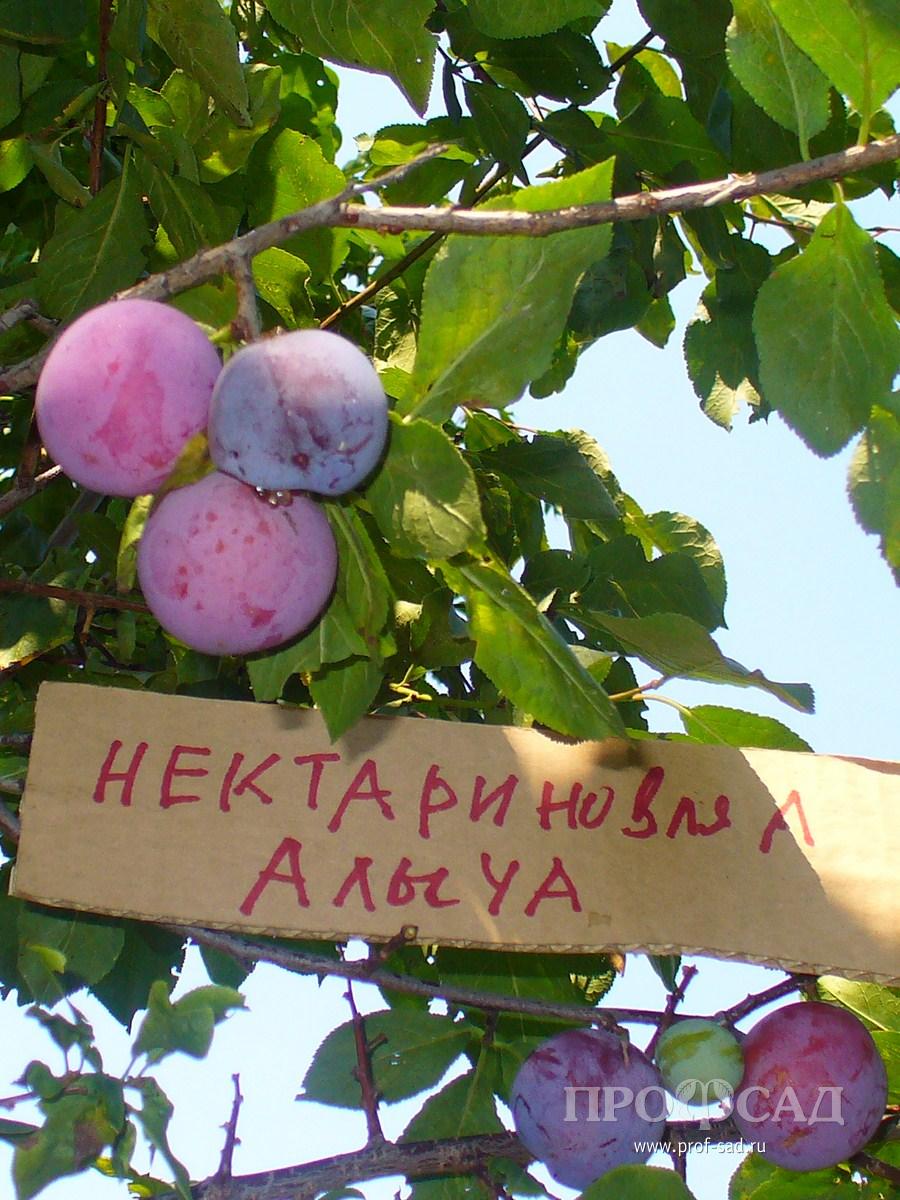 НЕКТАРИНОВЛЯ Л
АЛЫЧА
ПРОФСАД
www.prof-sad.ru